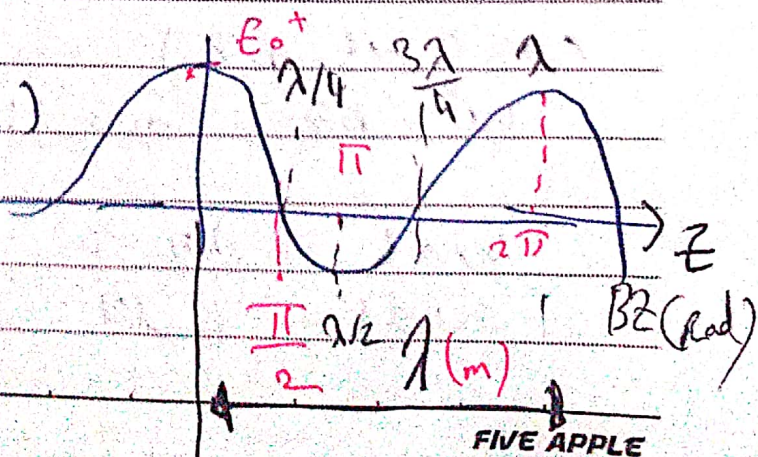 E₀⁺
λ/4 3λ/4 λ
)
π
2π Z
π/2 λ/2 λ(m) BZ(Rad)
FIVE APPLE